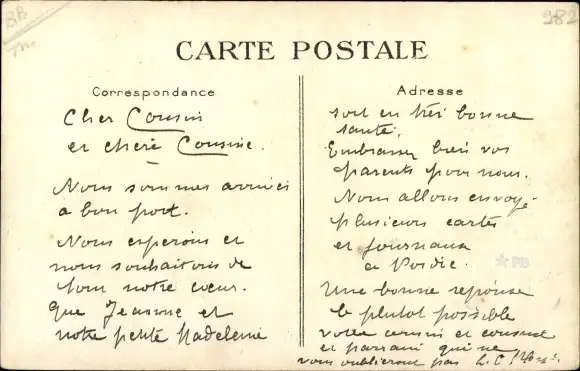 BB
982
CARTE POSTALE
Correspondance
Cher Cousin
et chère Cousine.
Nous sommes arrivés
a bon port.
Nous esperons et
nous souhaitons de
tout notre cœur.
Que Jeanne et
notre petite Madeleine
Adresse
soit en très bonne
santé.
Embrassez bien vos
parents pour nous.
Nous allons envoyé
plusieurs cartes
et journaux
a
Une bonne reponse
le plutot possible
votre cousin et cousine
et parrain qui ne
vous oublieront pas L. C.
PB